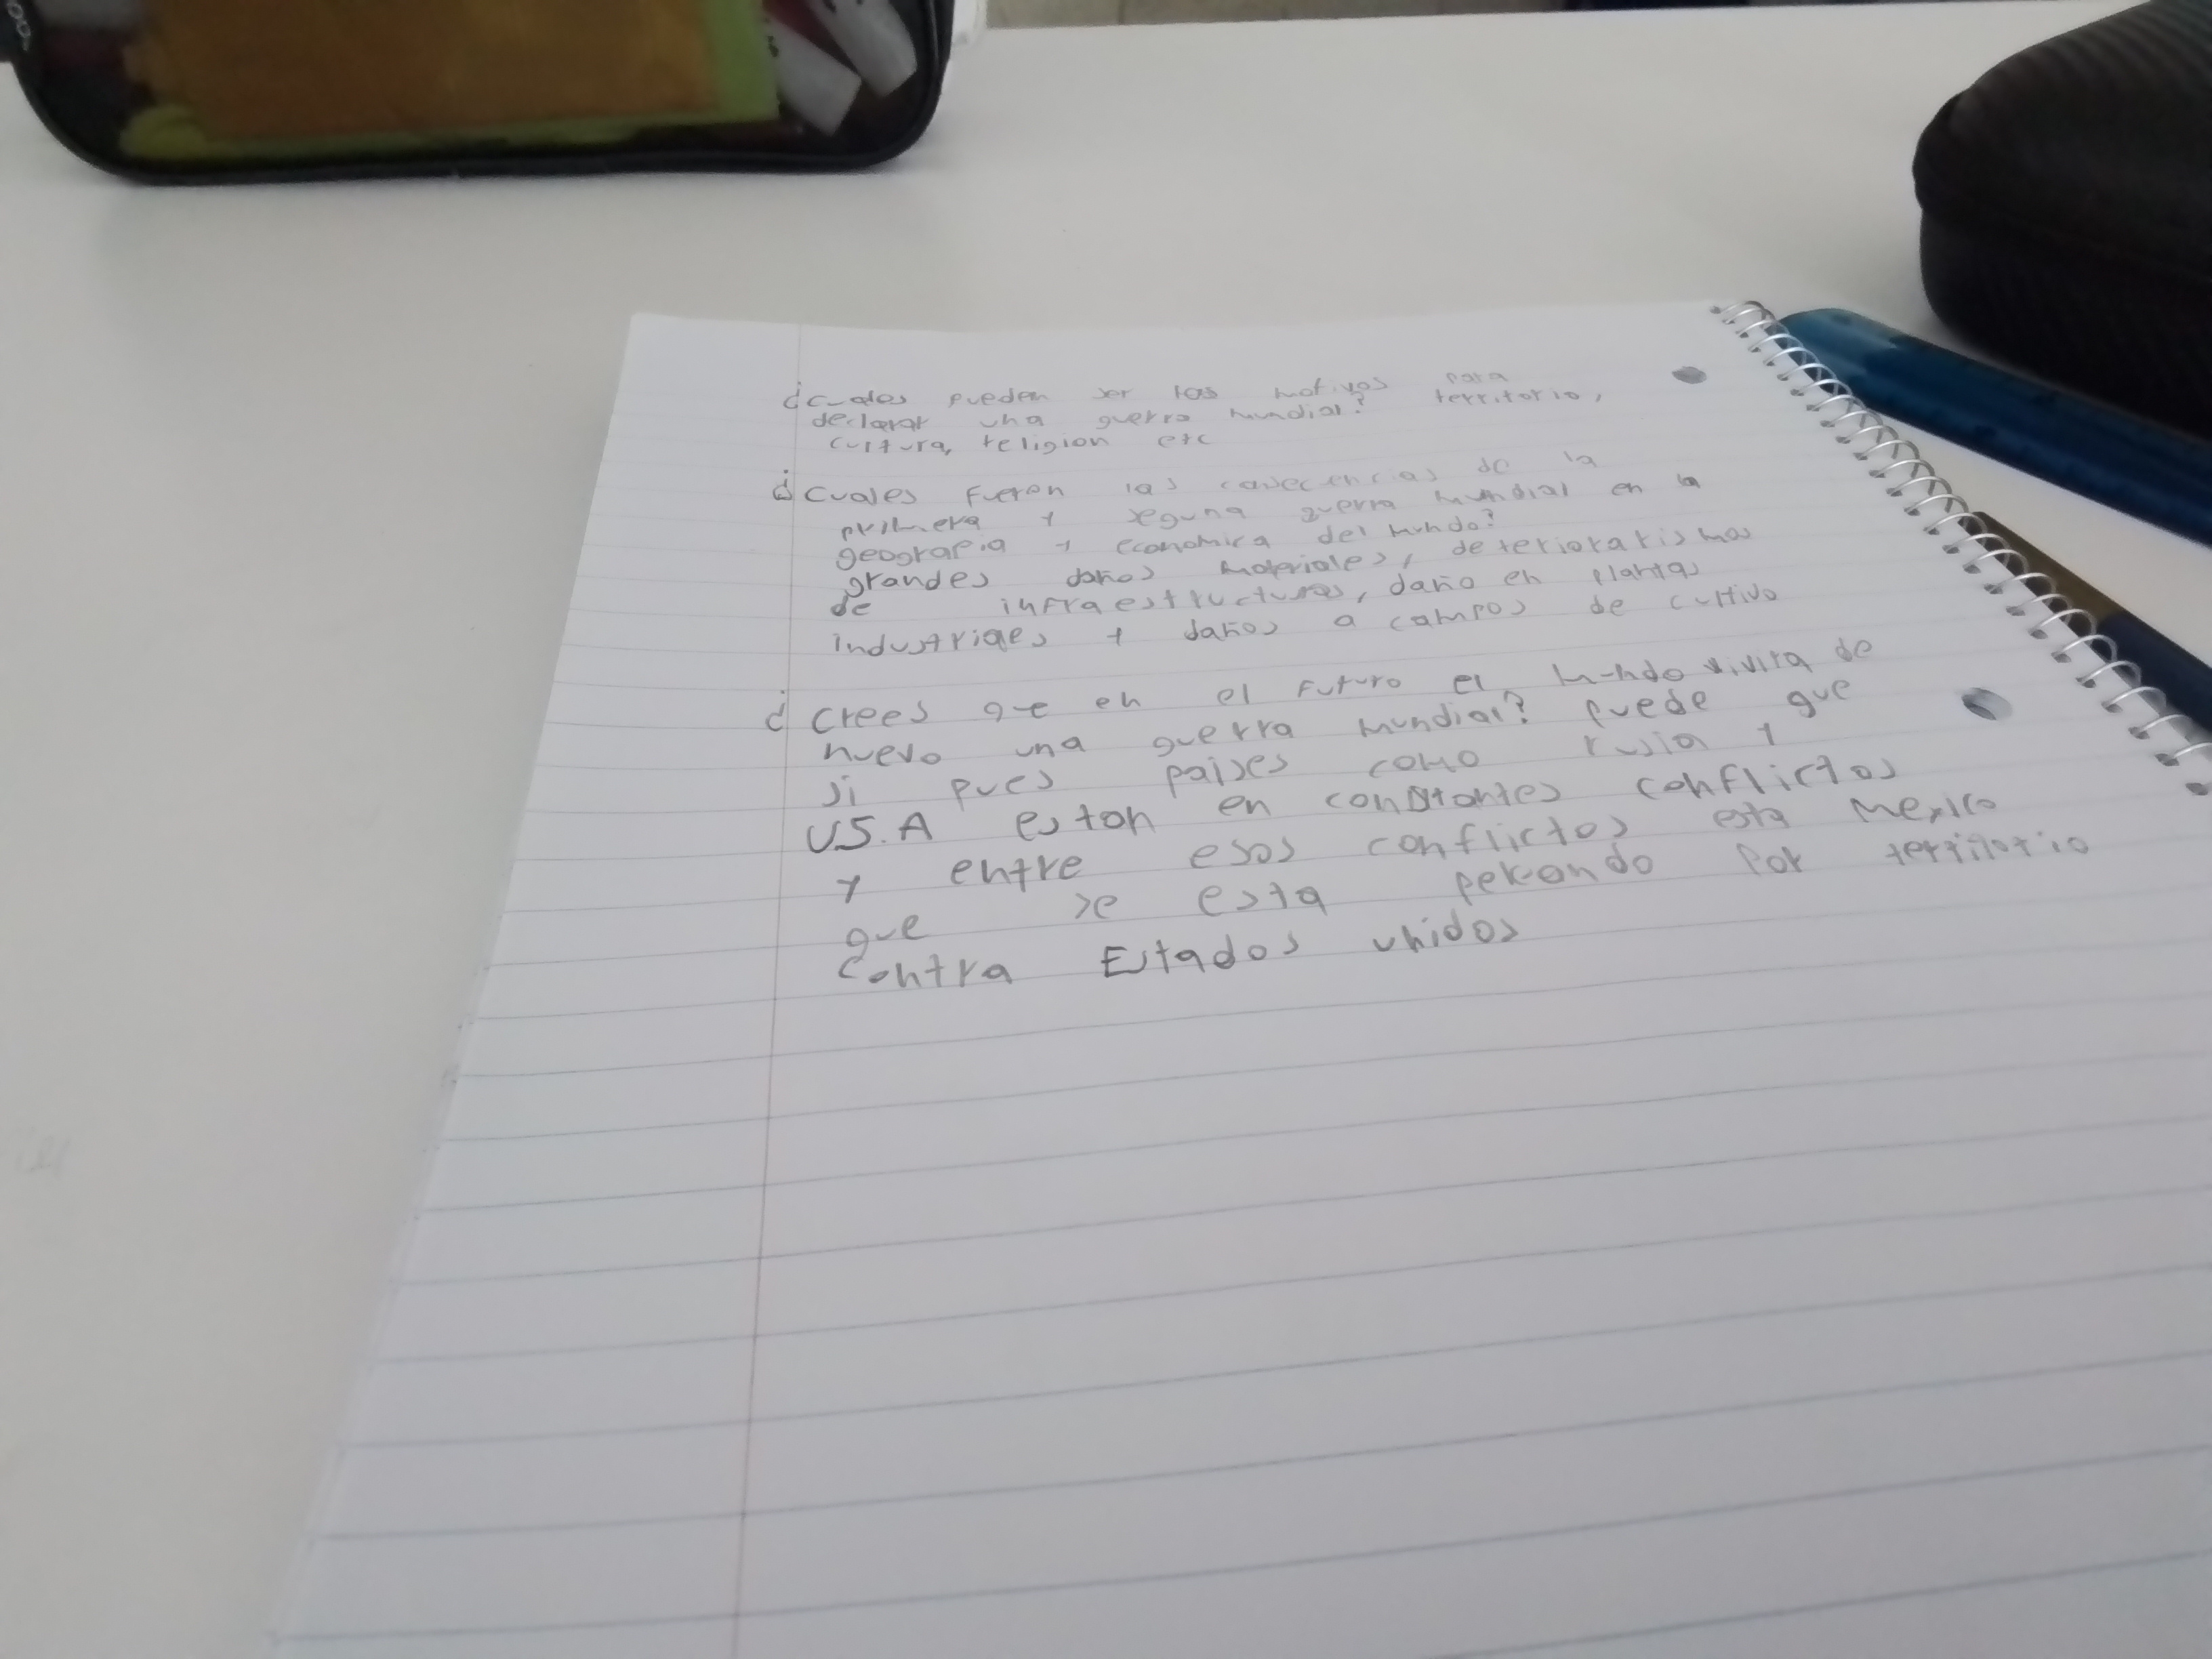 ¿cuales pueden ser los motivos para
declarar una guerra mundial? territorio,
cultura, religion etc
¿Cuales fueron las consecencias de la
primera y seguna guerra mundial en la
geografia y economica del mundo?
grandes daños materiales, deteriorarismos
de infraestructuras, daño en plantas
industriaes y daños a campos de cultivo
¿crees que en el futuro el mundo vivira de
nuevo una guerra mundial? puede que
si pues paises como rusia y
US.A estan en constantes conflictos
y entre esos conflictos esta Mexico
que se esta peleando por territorio
contra Estados unidos